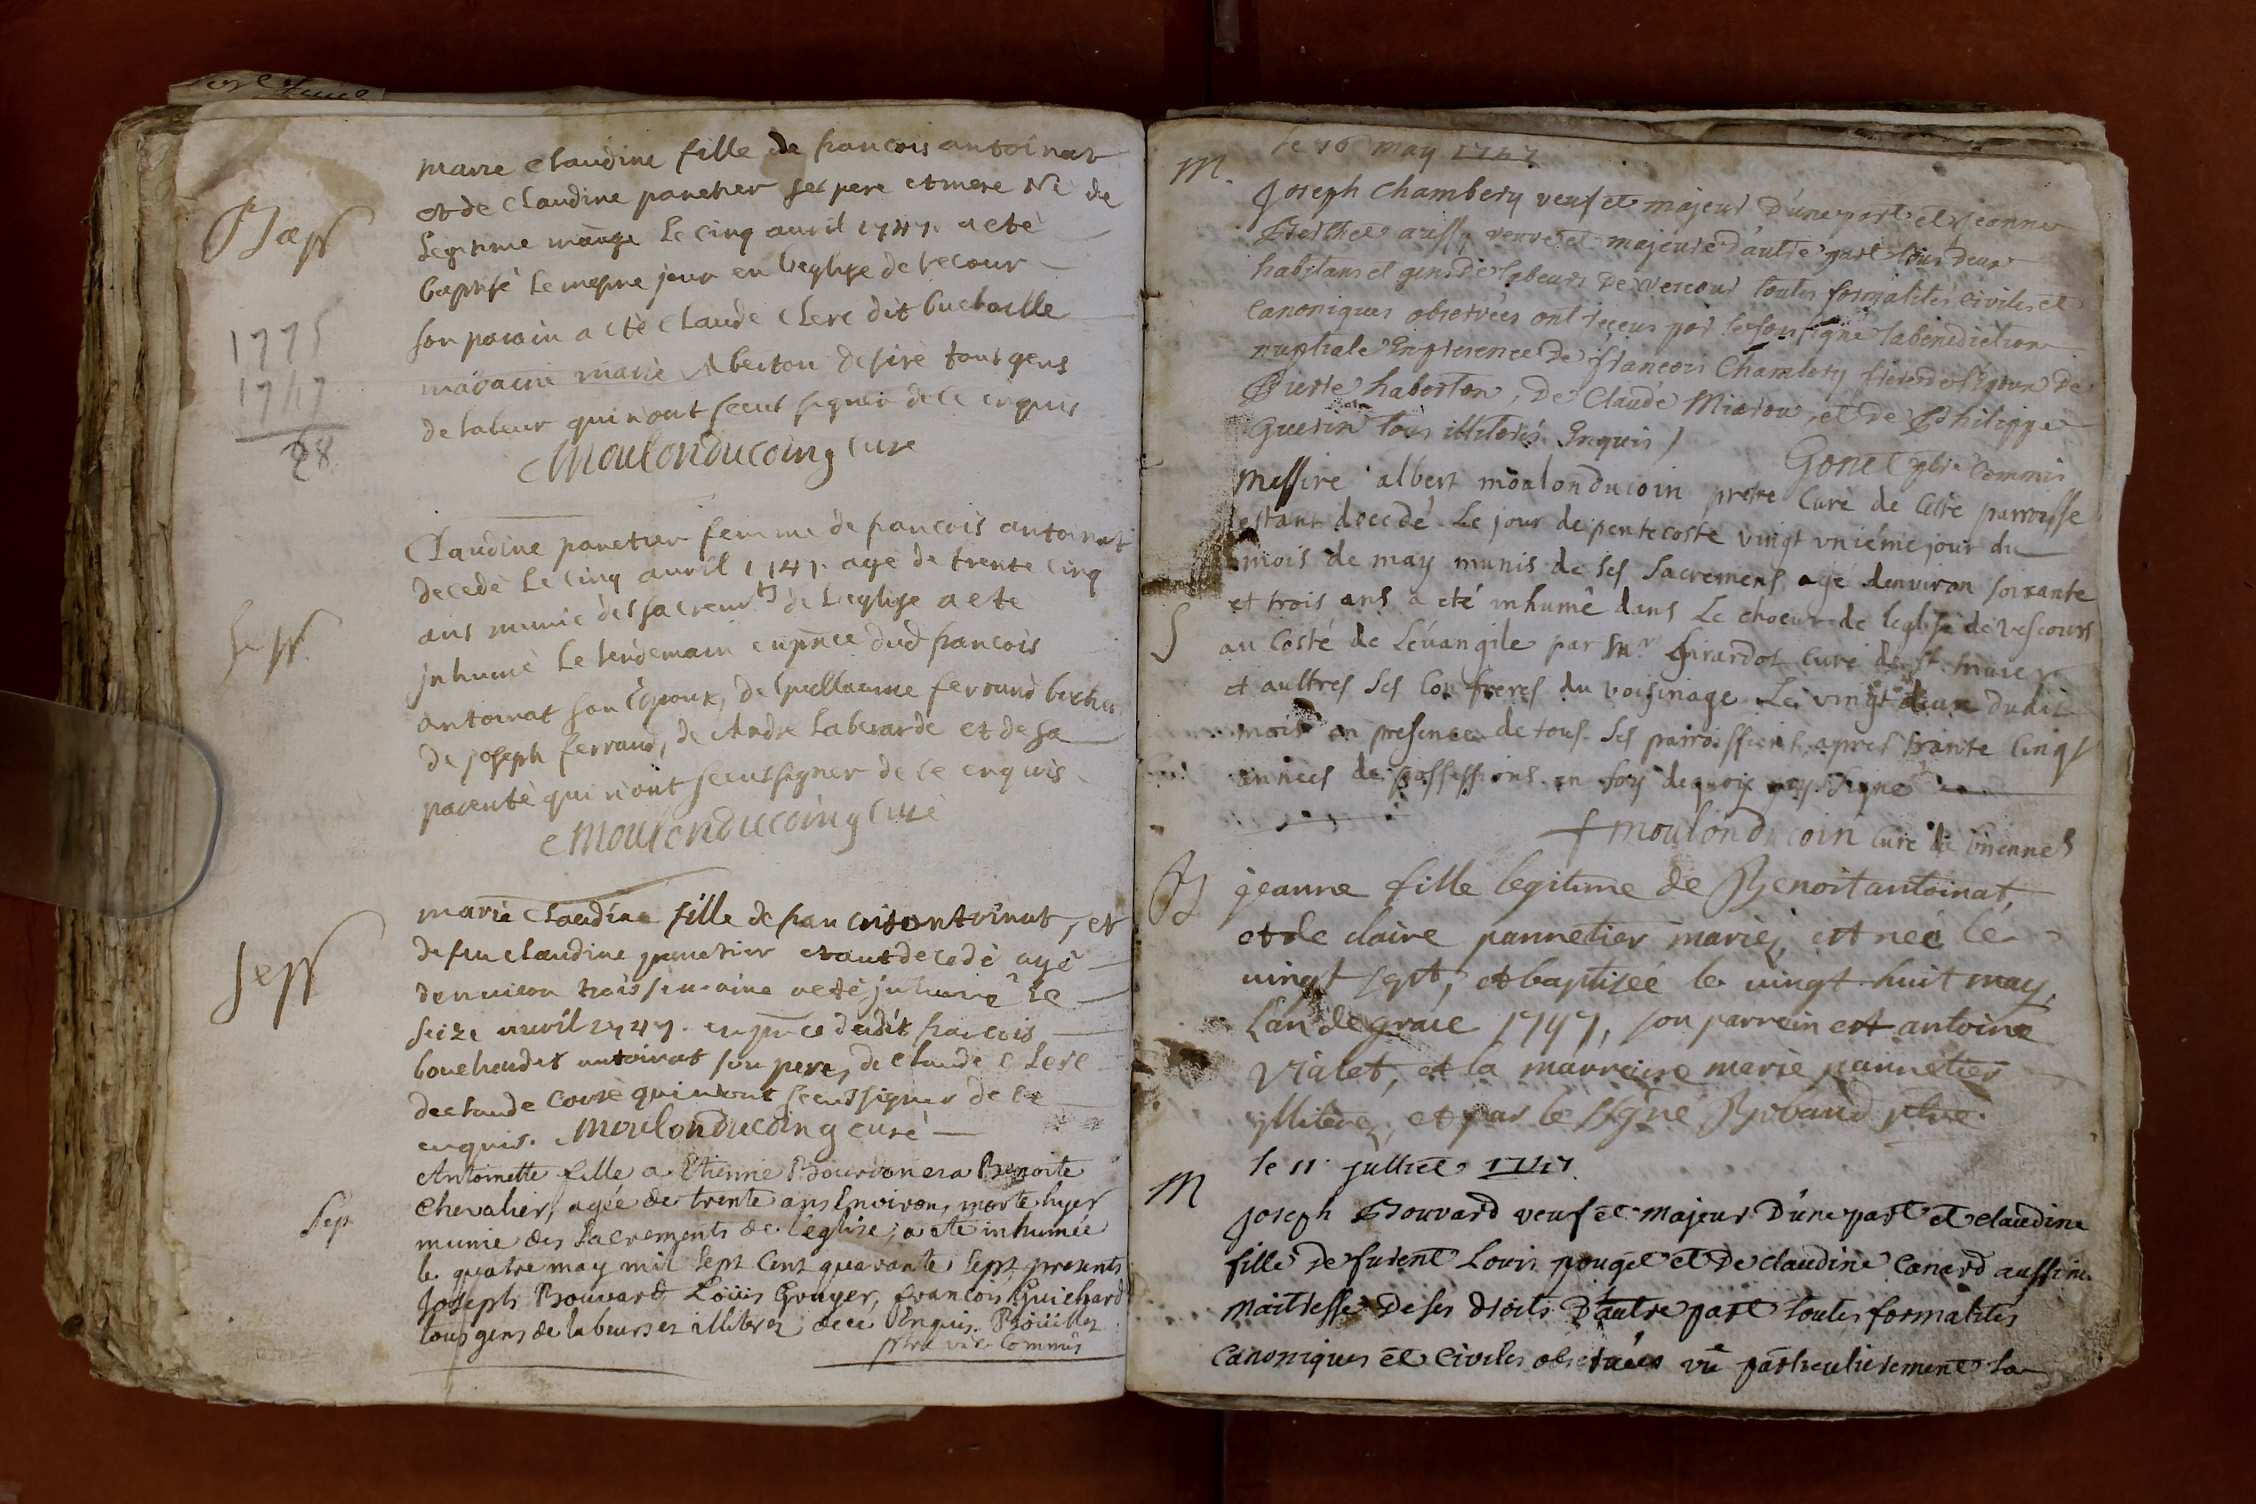 Bap
marie claudine fille de francois antoinat
et de claudine panetier ses pere et mere Né de
legitime mariage le cinq avril 1747. a eté
baptisé le mesme jour en leglise de vecour
son parain a eté claude clerc dit
maraine marie Aberton desire tous gens
de labeur qui n'ont sceut signer de ce enquis
Moulonducoing curé
1775
1747
28
Sep
Claudine panetier femme de francois antoinat
decedé le cinq avril 1747. agé de trente cinq
ans munie des sacremts de leglise a eté
inhumé le lendemain en pnce dud francois
antoinat son Epoux, de Guillaume ferrand
de joseph ferrand, de Andre laberarde et de sa
parenté qui n'ont sceut signer de ce enquis
Moulonducoing curé
Sep
marie claudine fille de francois antoinat, et
de feu claudine panetier etant decedé agé
denviron trois semaine a eté inhumé le
seize avril 1747. en pnce dudit francois
antoinat son pere, de claude clerc
de claude corre qui n'ont sceut signer de ce
enquis. Moulonducoing curé
Sep
Antoinette fille a Etienne Bourdon et a Benoite
Chevalier, agée de trente ans Environ, morte hyer
munie des Sacrements de l'eglise; a eté inhumée
le quatre may mil sept cent quarante sept, presents
Joseph Bouvard Loüis Gruyer, francois Guichard
tous gens de labeurs et illitérez de ce Enquis. Boüillet
ptre vic. Commis
le 16 may 1747
M.
Joseph Chambery veuf et majeur D'une part et jeanne
Berthet aussy veuve et majeure d'autre part tous deux
habitans et gens de labeurs de vescour toutes formalités civiles et
canoniques observées ont reçeus par le soussigné la benediction
nuptiale En presence de francois Chambery frere de l'epoux de
Pierre haberton, De Claude Mioton, et de Philippe
Guerin tous illiterés Enquis /
Gonet ptre Commis
S
Messire albert moulonducoin pretre Curé de cette parroisse
estant decedé le jour de pentecoste vingt unième jour du
mois de may munis de ses Sacremens agé denviron soixante
et trois ans a eté inhumé dans le choeur de leglise de vescours
au Costé de Lévangile par Mr Girardot Curé de st trivier
et aultres ses Confreres du voisinage le vingt deux dudit
mois en presence de tous ses parroissiens apres trante cinq
années de possessions en foy dequoy jay signé
moulonducoin curé de biennes
B
jeanne fille legitime de Benoit antoinat,
et de claire pannetier mariez, est née le
vingt sept, et baptisée le vingt huit may,
lan de grace 1747, son parrein est antoine
Vialet, et la marreine marie pannetier
yllitérez, et par le ssigné Ribaud ptre.
le 11 julliet 1747.
M
Joseph Bouvard veuf et majeur D'une part et claudine
fille de furent Louis pouget et de claudine Canard aussi
maitresse de ses droits D'autre part toutes formalités
canoniques et civiles observées vû particulierement la